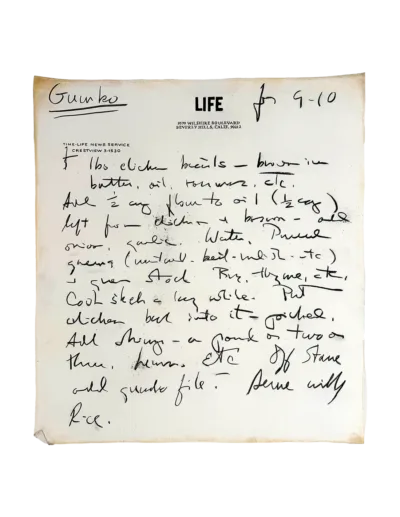 Gumbo
for 9-10
LIFE
9570 WILSHIRE BOULEVARD
BEVERLY HILLS, CALIF. 90212
TIME-LIFE NEWS SERVICE
CRESTVIEW 3-1530
5 lbs chicken breasts - brown in
butter, oil, etc.
Add 1/2 cup flour to oil (1/2 cup)
left from chicken & brown - add
onion, garlic. Water, Pureed
greens (mustard - - etc)
stock Bay, thyme, etc.
Cook a long while. Put
chicken back into it -
Add shrimp - a pound or two or
three, lemon, etc Off Stove
add gumbo file. Serve with
Rice.